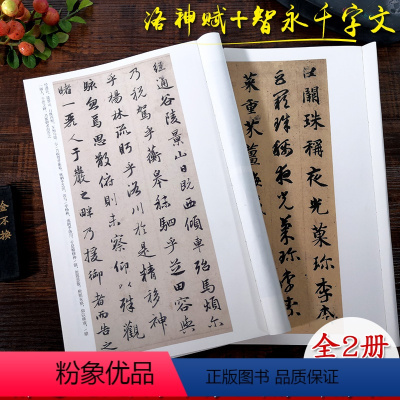 洛神赋+智永千字文
經通谷陵景山日既西傾車殆馬煩尔
乃税駕乎蘅皋秣駟乎芝田容與
乎楊林流眄乎洛川於是精移神
駭忽焉思散俯則未察仰以殊觀
睹一麗人于巖之畔乃援御者而告之
巨闕珠稱夜光菓珍李柰
闕珠稱夜光菓珍李柰
菜重芥薑
金不换
全2册
粉象优品